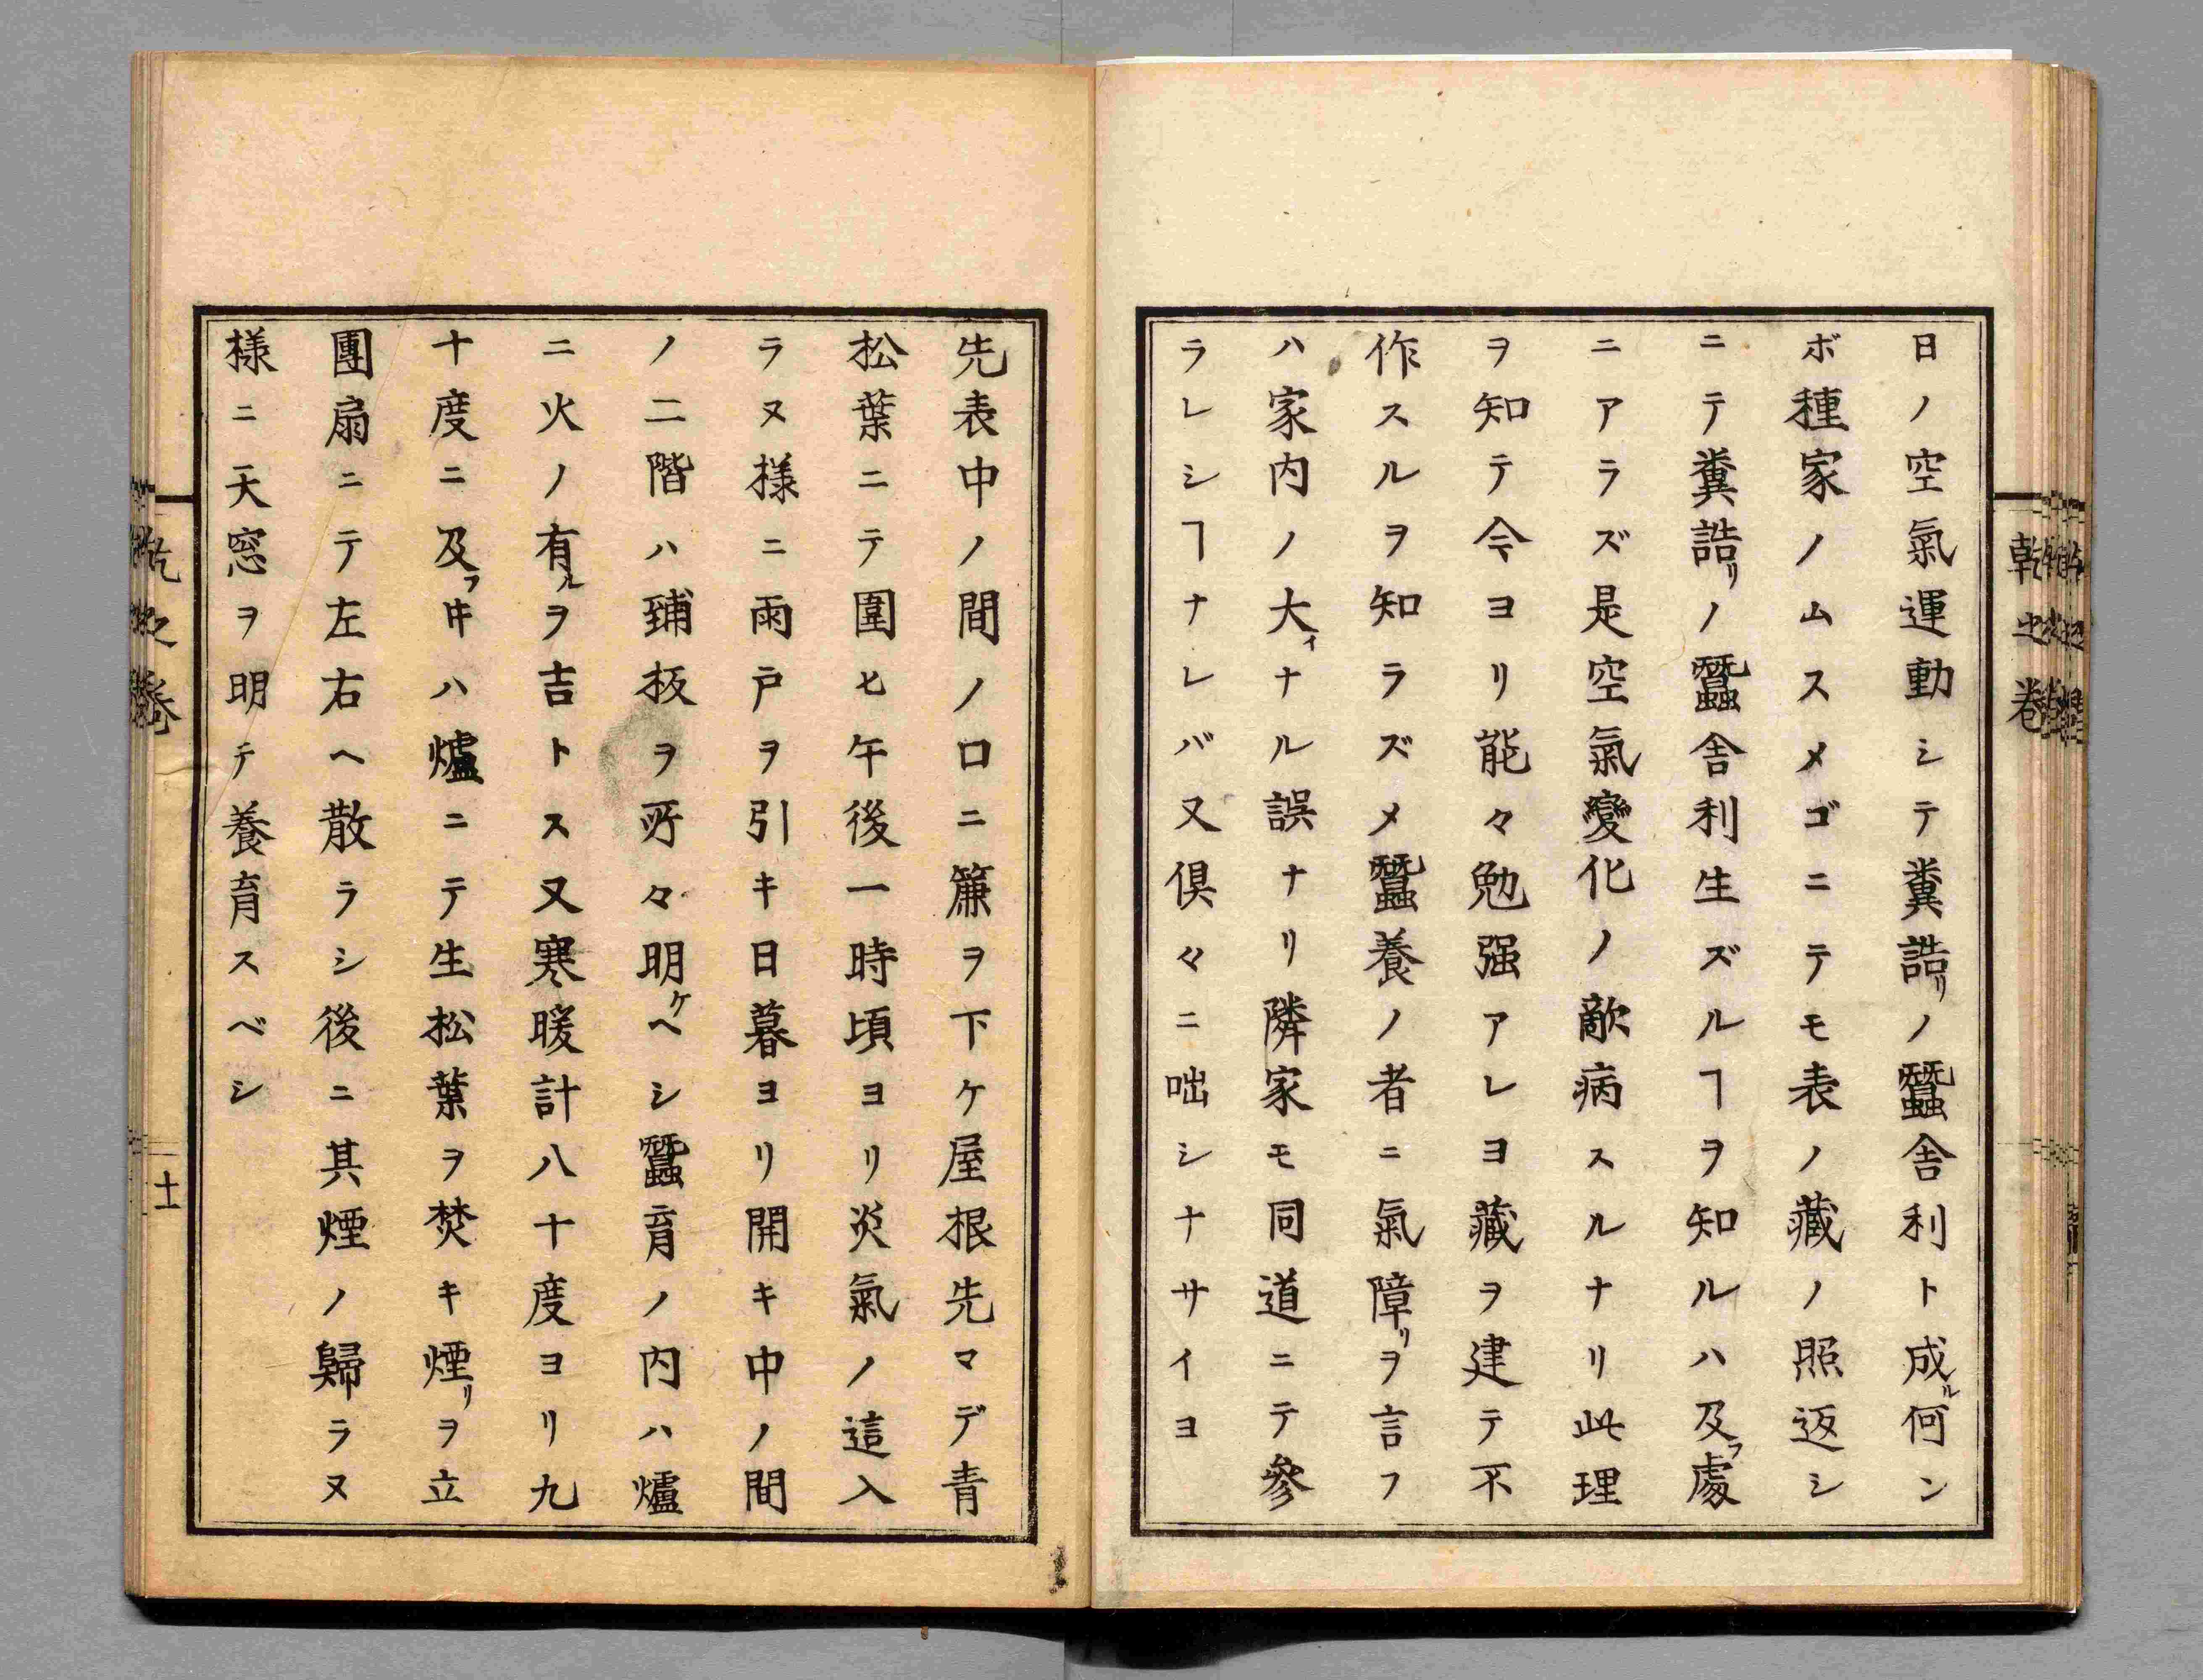 日ノ空氣運動シテ糞誥リノ蠶舎利ト成ル何ン
ボ種家ノムスメゴニテモ表ノ藏ノ照返シ
ニテ糞誥リノ蠶舎利生ズルヿヲ知ルハ及フ處
ニアラズ是空氣變化ノ敵病スルナリ此理
ヲ知テ今ヨリ能々勉强アレヨ藏ヲ建テ不
作スルヲ知ラズメ蠶養ノ者ニ氣障リヲ言フ
ハ家内ノ大イナル誤ナリ隣家モ同道ニテ參
ラレシヿナレバ又倶々ニ咄シナサイヨ
乾之卷
先表中ノ間ノ口ニ簾ヲ下ケ屋根先マデ青
松葉ニテ圍ヒ午後一時頃ヨリ炎氣ノ這入
ラヌ樣ニ雨戸ヲ引キ日暮ヨリ開キ中ノ間
ノ二階ハ鋪板ヲ所々明ケヘシ蠶育ノ内ハ爐
ニ火ノ有ルヲ吉トス又寒暖計八十度ヨリ九
十度ニ及フ𪜈ハ爐ニテ生松葉ヲ焚キ煙リヲ立
團扇ニテ左右ヘ散ラシ後ニ其煙ノ歸ラヌ
樣ニ天窓ヲ明テ養育スベシ
乾之卷
十一